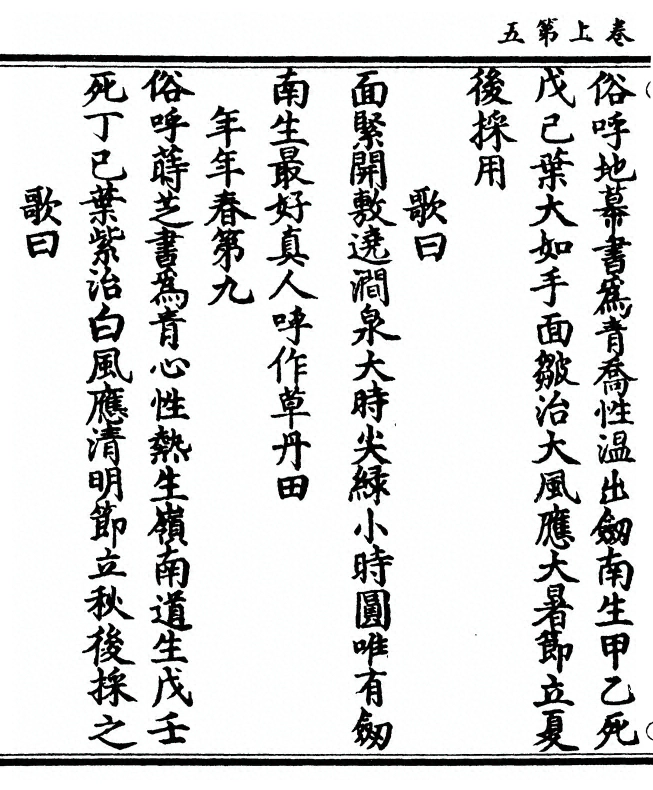 卷上第五
俗呼地慕書爲青喬性温出劒南生甲乙死
戊己葉大如手面皺治大風應大暑節立夏
後採用
歌曰
面緊開敷遶澗泉大時尖緑小時圓唯有劒
南生最好真人呼作草丹田
年年春第九
俗呼蒔芝書爲青心性熱生嶺南道生戊壬
死丁巳葉紫治白風應清明節立秋後採之
歌曰